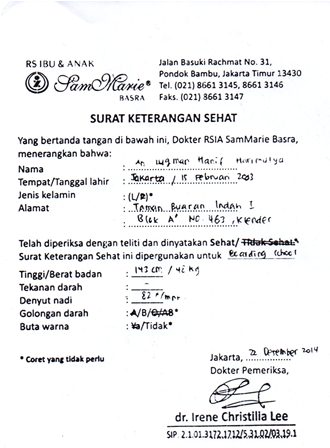 RS IBU & ANAK
SamMarie®
BASRA
Jalan Basuki Rachmat No. 31,
Pondok Bambu, Jakarta Timur 13430
Tel. (021) 8661 3145, 8661 3146
Faks. (021) 8661 3147
SURAT KETERANGAN SEHAT
Yang bertanda tangan di bawah ini, Dokter RSIA SamMarie Basra,
menerangkan bahwa:
Nama : An Luqman Hanif
Tempat/Tanggal lahir : Jakarta / 15 Februari 2003
Jenis kelamin : (L/P)*
Alamat : Taman Buaran Indah I
Blok A NO. 463, Klender
Telah diperiksa dengan teliti dan dinyatakan Sehat/ Tidak Sehat.*
Surat Keterangan Sehat ini dipergunakan untuk Boarding School
Tinggi/Berat badan : 143 cm / 42 kg
Tekanan darah : -
Denyut nadi : 82 x/mnt
Golongan darah : A/B/O/AB*
Buta warna : Ya/Tidak*
* Coret yang tidak perlu
Jakarta, 22 Desember 2014
Dokter Pemeriksa,
dr. Irene Christilia Lee
SIP: 2.1.01.3172.1712/5.31.02/03.19.1